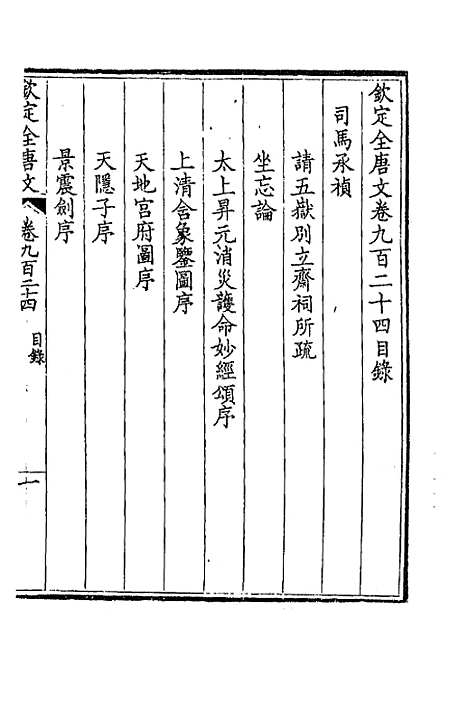 欽定全唐文卷九百二十四目錄
司馬承禎
請五嶽別立齋祠所疏
坐忘論
太上昇元消災護命妙經頌序
上清含象鑒圖序
天地宮府圖序
天隱子序
景震劍序
欽定全唐文 卷九百二十四 目錄 一